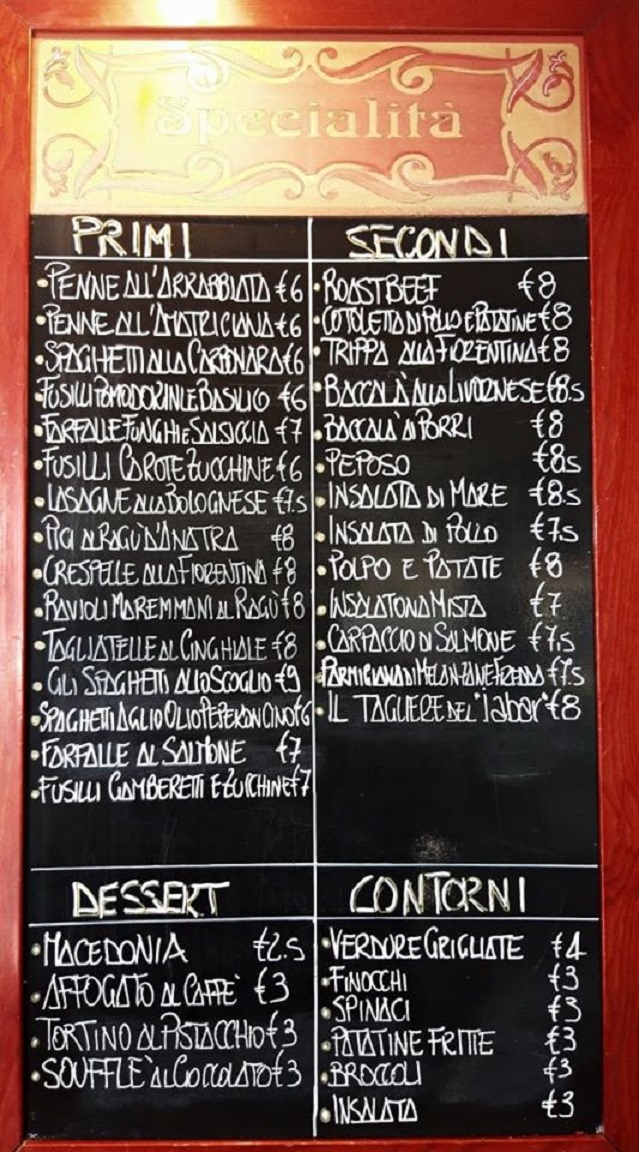 Specialità
PRIMI
PENNE ALL'ARRABBIATA €6
PENNE ALL'AMATRICIANA €6
SPAGHETTI ALLA CARBONARA €6
FUSILLI POMODORINI E BASILIO €6
FARFALLE FUNGHI E SALSICCIA €7
FUSILLI CAROTE ZUCCHINE €6
LASAGNE ALLA BOLOGNESE €7.5
PICI AL RAGÙ D'ANATRA €8
CRESPELLE ALLA FIORENTINA €8
RAVIOLI MAREMMANI AL RAGÙ €8
TAGLIATELLE AL CINGHIALE €8
GLI SPAGHETTI ALLO SCOGLIO €9
SPAGHETTI AGLIO OLIO PEPERONCINO €6
FARFALLE AL SALMONE €7
FUSILLI GAMBERETTI E ZUCCHINE €7
SECONDI
ROAST BEEF €8
COTOLETTA DI POLLO E PATATINE €8
TRIPPA ALLA FIORENTINA €8
BACCALÀ ALLA LIVORNESE €8.5
BACCALA' AI PORRI €8
PEPOSO €8.5
INSALATA DI MARE €8.5
INSALATA DI POLLO €7.5
POLPO E PATATE €8
INSALATONA MISTA €7
CARPACCIO DI SALMONE €7,5
PARMIGIANA DI MELANZANE FREDDA €7.5
IL TAGLIERE DEL "labor" €8
DESSERT
MACEDONIA €2.5
AFFOGATO AL CAFFE' €3
TORTINO AL PISTACCHIO €3
SOUFFLE' AL CIOCCOLATO €3
CONTORNI
VERDURE GRIGLIATE €4
FINOCCHI €3
SPINACI €3
PATATINE FRITTE €3
BROCCOLI €3
INSALATA €3